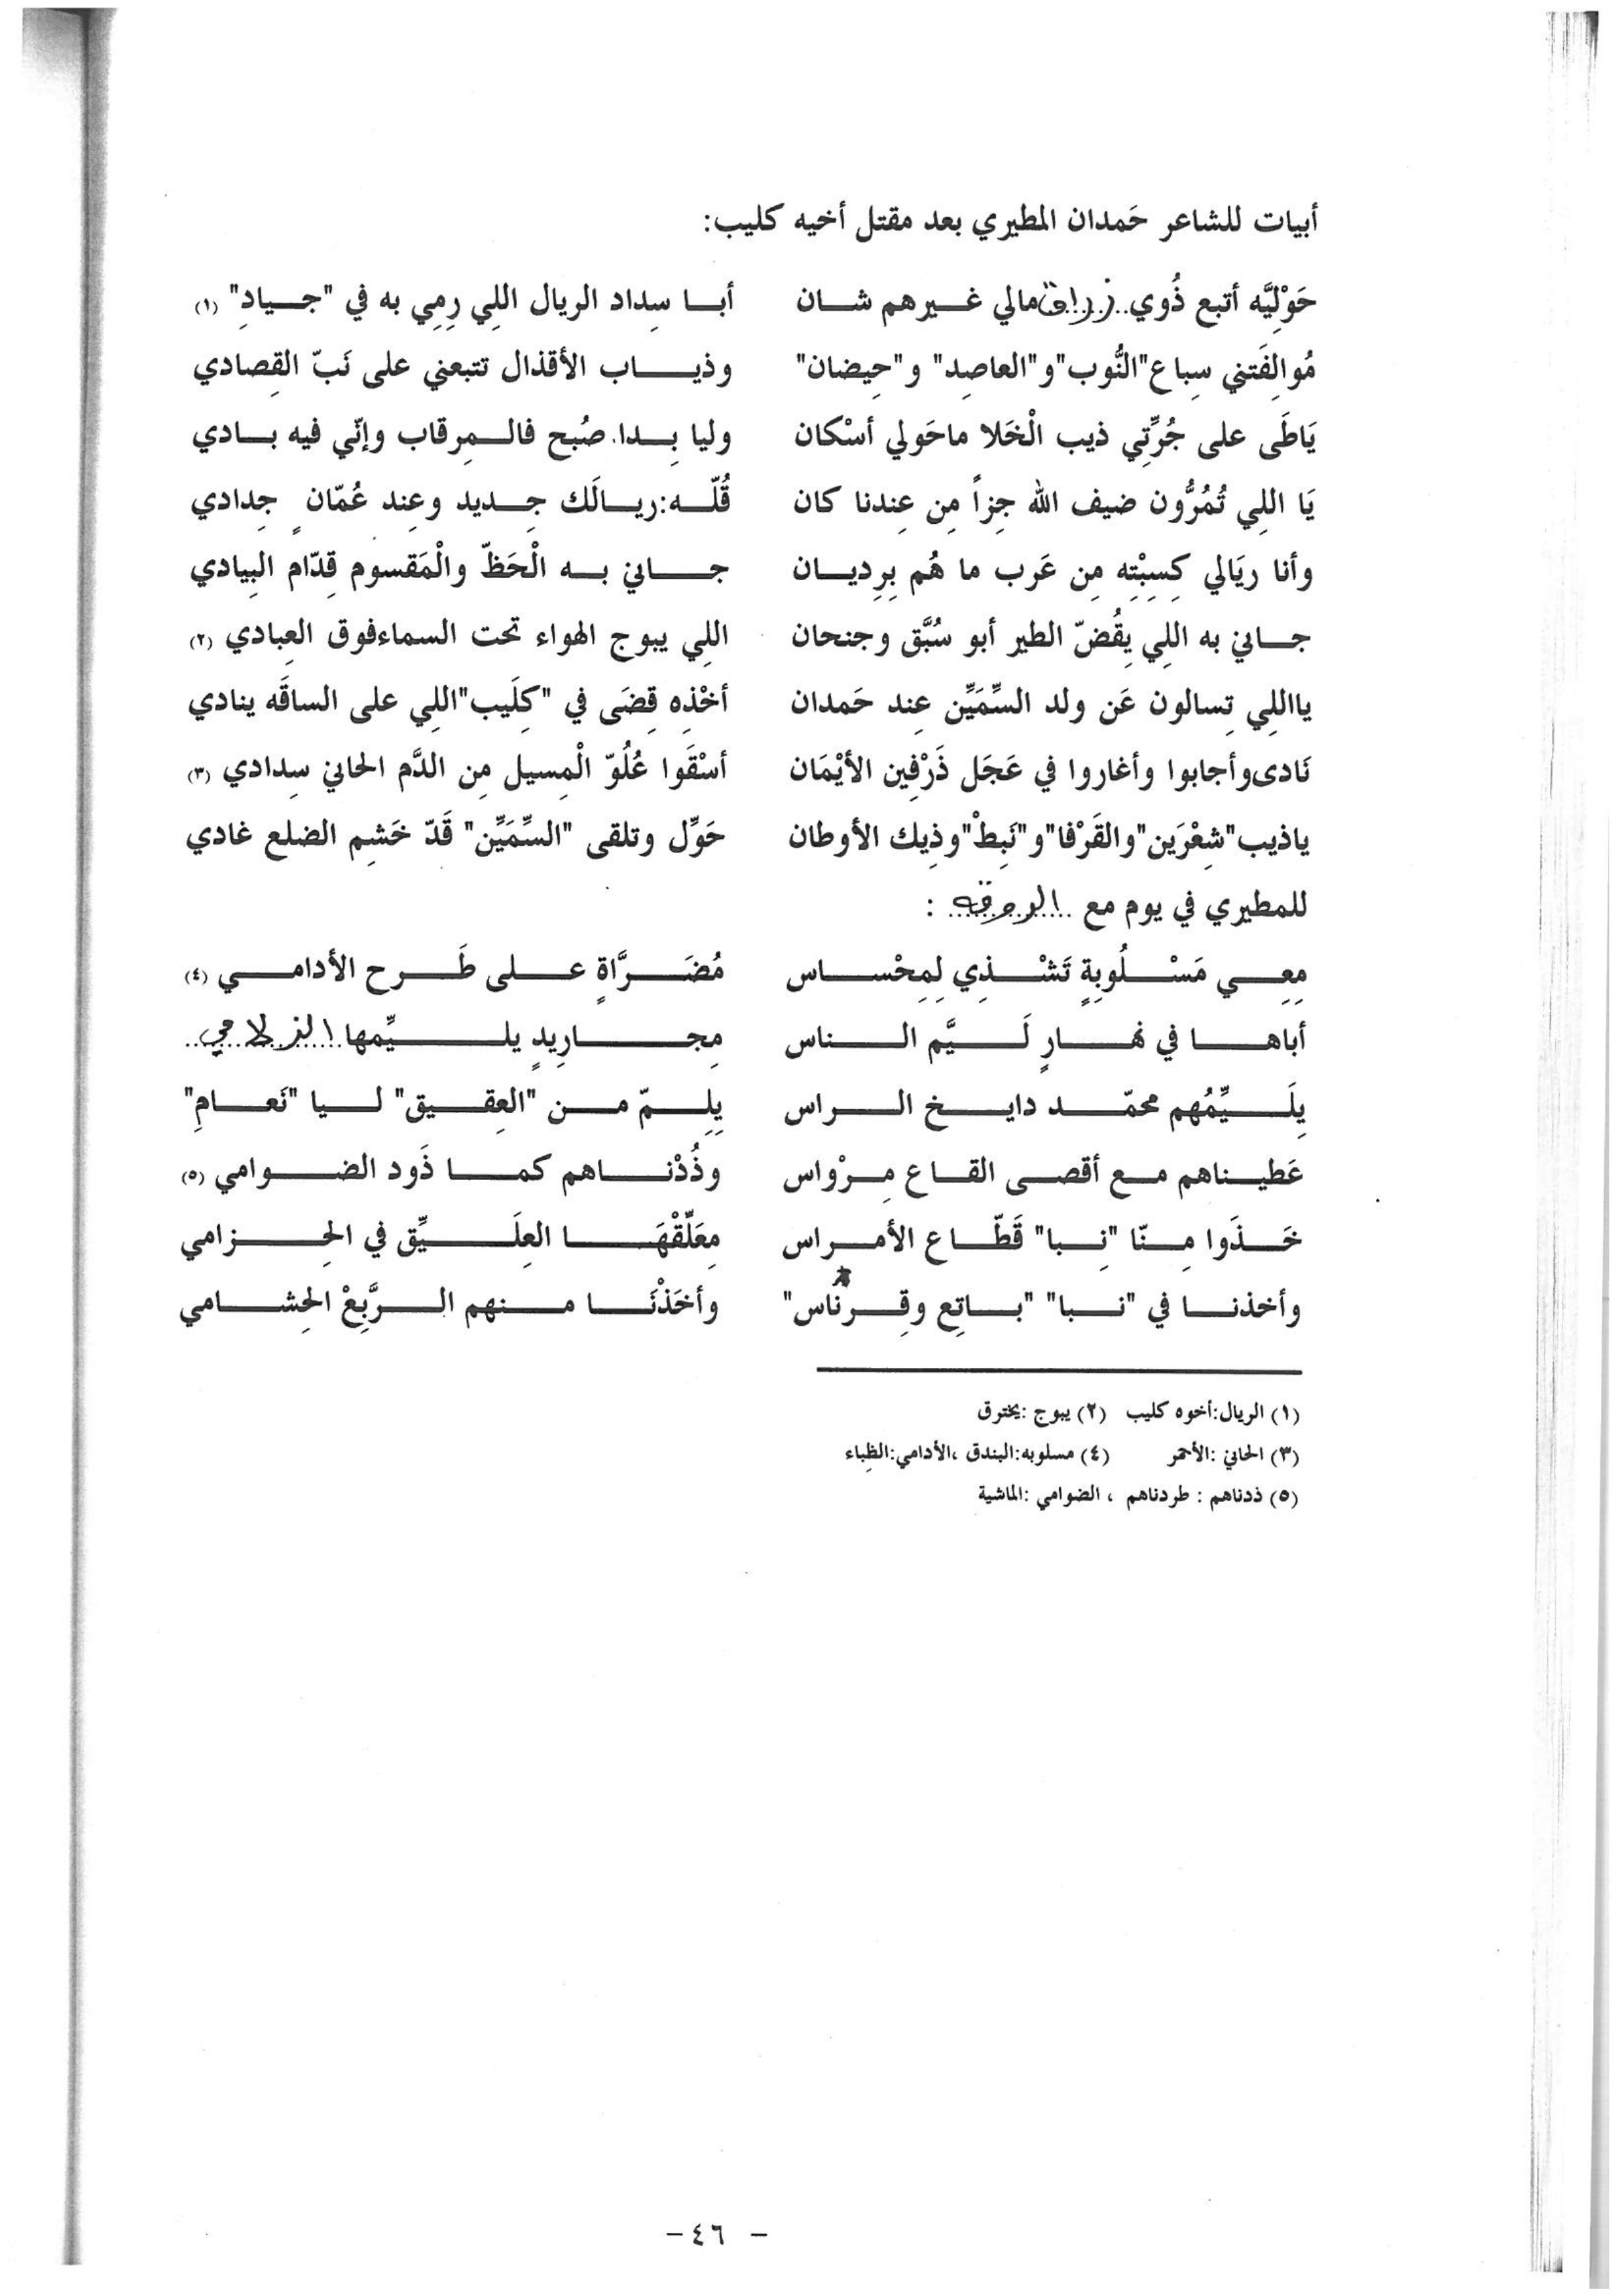 أبيات للشاعر حَمدان المطيري بعد مقتل أخيه كليب:
حَوْلِيَّه أتبع ذُوي زراق مالي غيرهم شان أبا سِداد الريال اللِي رِمِي به في "جيادِ" (١)
مُوالِفَتني سِباع "النُّوب" و"العاصِد" و"حِيضان" وذياب الأقذال تتبعني على نَبّ القِصادي
يَاطَى على جُرِّتِي ذيب الْخَلا ماحَولي أسْكان وليا بِدا صُبح فالمِرقاب وإنّي فيه بادي
يَا اللِي تُمُرُّون ضيف الله جِزاً مِن عِندنا كان قُلّه: ريالَك جِديد وعِند عُمّانٍ جِدادي
وأنا ريَالي كِسِبْتِه مِن عَرب ما هُم بِرِديان جاني به الْحَظّ والْمَقسوم قِدّام البِيادي
جاني به اللِي يِقُضّ الطير أبو سُبَّق وجنحان اللِي يبوج الهواء تحت السماء فوق العِبادي (٢)
يااللِي تِسالون عَن ولد السِّمَيِّن عِند حَمدان أخْذِه قِضَى في "كِلَيب" اللِي على الساقَه ينادي
نَادى وأجابوا وأغاروا في عَجَل ذَرْفِين الأيْمَان أسْقَوا عُلُوّ الْمِسيل مِن الدَّم الحاني سِدادي (٣)
ياذيب "شِعْرَين" والقَرْفا" و"نَبِطْ" وذِيك الأوطان حَوِّل وتلقى "السِّمَيِّن" قَدّ خَشم الضلع غادي
للمطيري في يوم مع الورقه :
مِعِي مَسْلُوبِةٍ تَشْذِي لِمِحْساس مُضَرَّاةٍ على طَرح الأدامي (٤)
أباها في نهارٍ لَيَّم الناس مِجارِيدٍ يليِّمها الزلامي
يِلَيِّمُهم محمّد دايخ الراس يِلِمّ من "العِقيق" ليا "نَعامِ"
عَطيناهم مع أقصى القاع مِرْواس وذُدْناهم كما ذَود الضوامي (٥)
خَذَوا مِنّا "نِبا" قَطّاع الأمراس مِعَلّقْهَا العِلَيِّق في الحِزامي
وأخذنا في "نبا" "باتِع وقِرناس" وأخَذْنَا منهم الرَّبِعْ الحِشامي
(١) الريال: أخوه كليب (٢) يبوج : يخترق
(٣) الحاني : الأحمر (٤) مسلوبه: البندق ، الأدامي: الظِباء
(٥) ذدناهم : طردناهم ، الضوامي : الماشية
- ٤٦ -